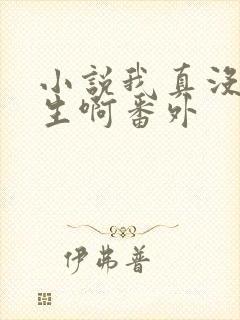 小説我真没
生啊番外
伊弗普